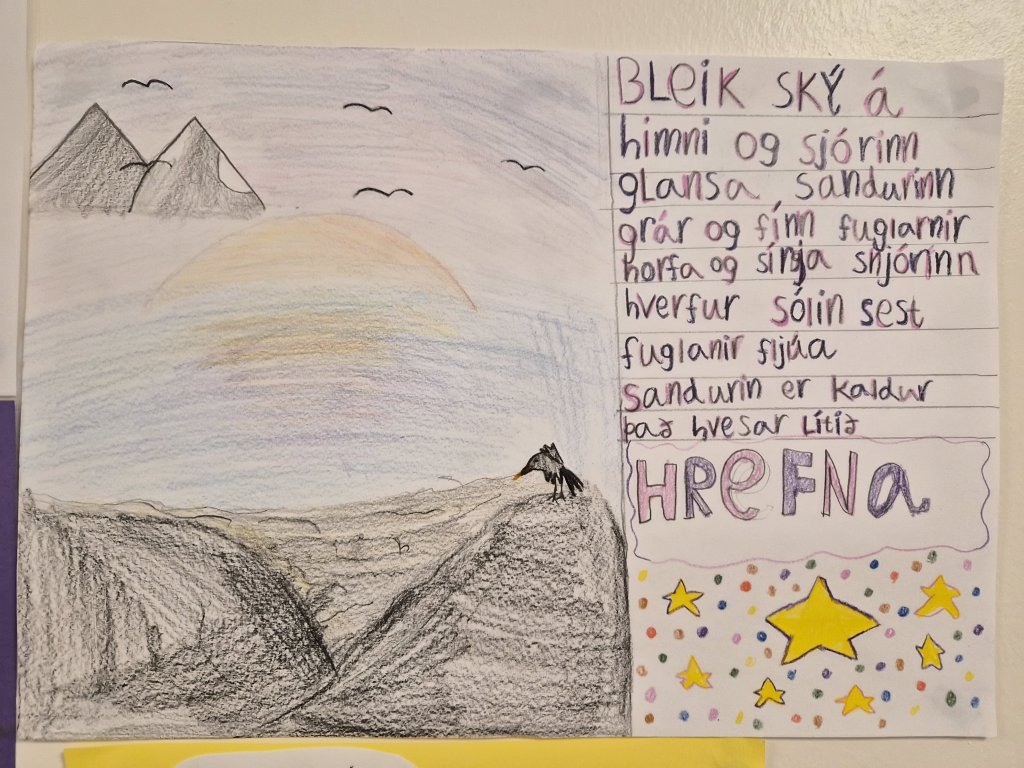 BLeiK SKÝ á
himni og sjórinn
gLansa sandurinn
grár og fínn fuglarnir
horfa og sínja snjórinn
hverfur sólin sest
fuglanir fljúa
Sandurin er kaldur
það hvesar Lítið
HReFNa